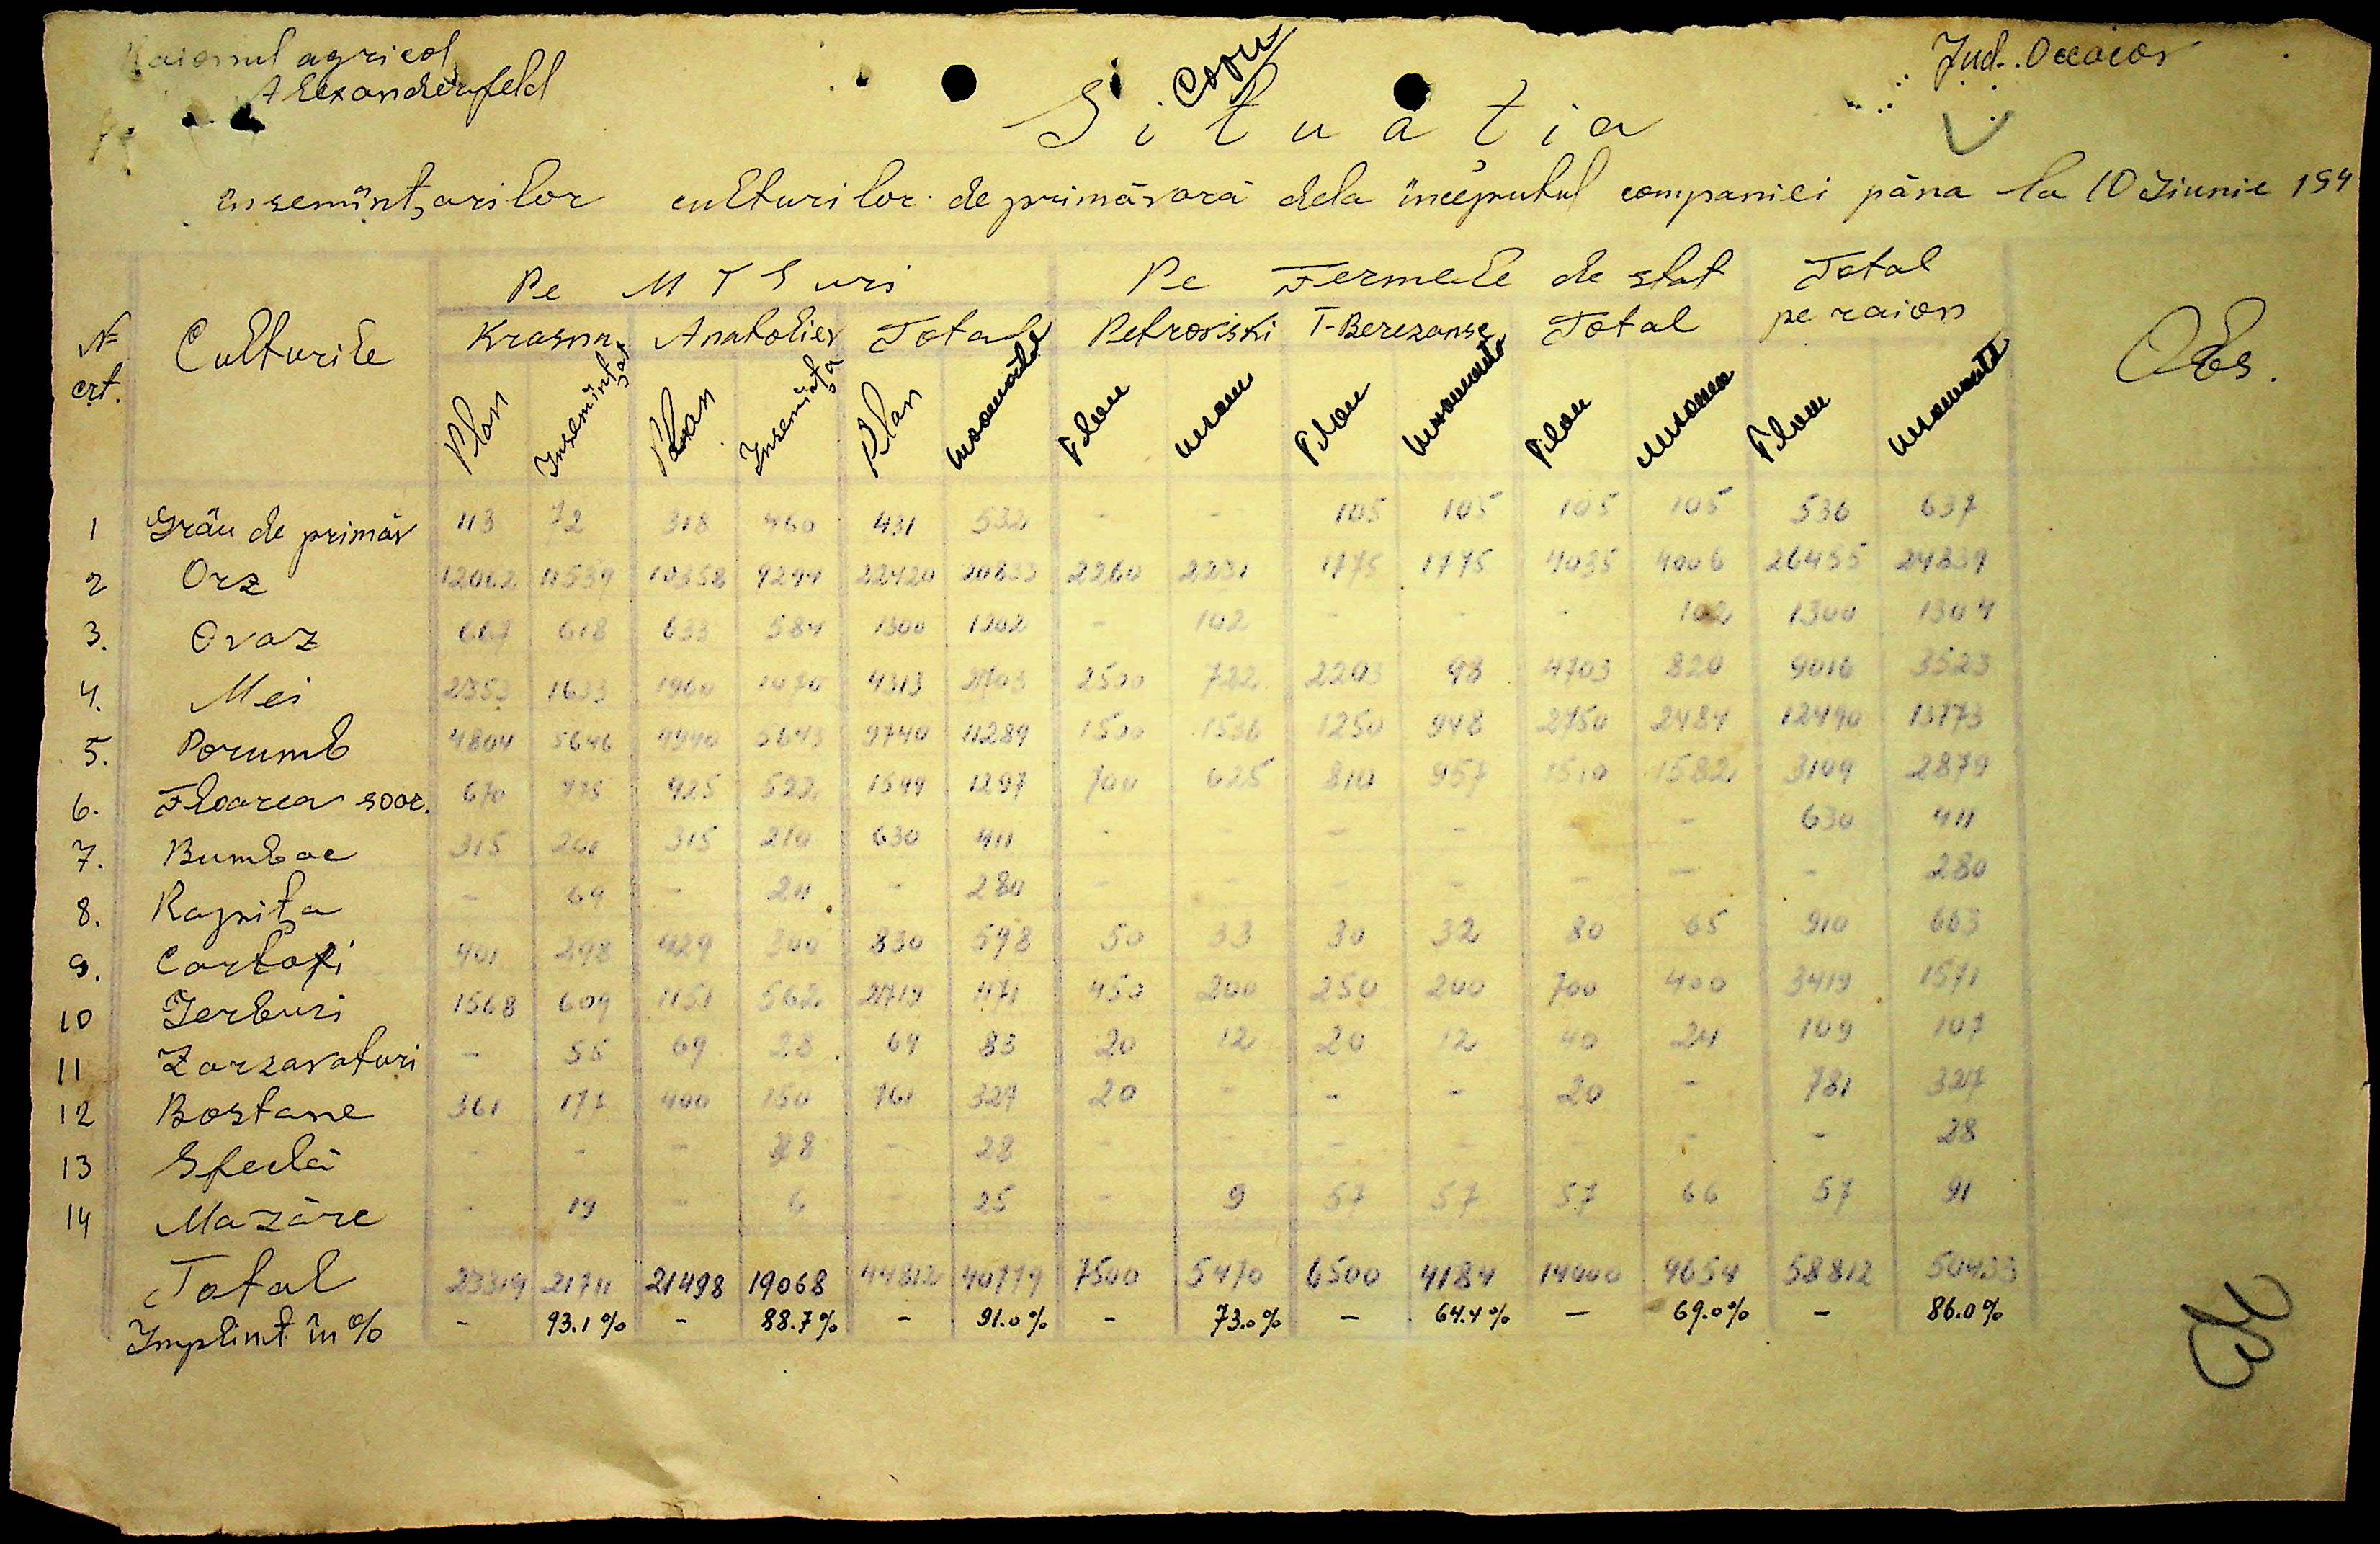 Raionul agricol
Alexanderfeld
Jud. Oceacov
Copie
Situatia
însemînțarilor culturilor de primăvară dela începutul companiei pâna la 10 Iiunie 194
№ crt. Culturile Pe MTS uri Pe Fermele de stat Total pe raion Obs.
Krasna Anatoliev Total Petrovski T-Berezansc Total
Plan Insemințat Plan Insemința Plan Plan Plan Plan Plan
1 Grâu de primăv 113 72 318 460 431 532 - - 105 105 105 105 536 637
2 Orz 12062 11539 10358 9294 22420 20833 2260 2231 1775 1775 4035 4006 26455 24839
3. Ovaz 667 618 633 584 1300 1202 - 102 - - - 102 1300 1304
4. Mei 2353 1633 1960 1070 4313 2703 2500 722 2203 98 4703 820 9016 3523
5. Porumb 4804 5646 4940 5643 9740 11289 1500 1536 1250 948 2750 2484 12490 13773
6. Floarea soar. 670 775 925 522 1599 1297 700 625 810 957 1510 1582 3109 2879
7. Bumbac 315 201 315 210 630 411 - - - - - 630 411
8. Rapița - 69 - - 280 - - - - - - - 280
9. Cartofi 401 298 429 300 830 598 50 33 30 32 80 65 910 663
10 Ierburi 1568 609 1151 562 2719 1171 450 200 250 200 700 400 3419 1571
11 Zarzavaturi - 55 69 28 69 83 20 12 20 12 40 24 109 107
12 Bostane 361 177 400 150 761 327 20 - - - 20 - 781 327
13 Sfeclă - - - 28 - 28 - - - - - - - 28
14 Mazăre - 19 - 6 25 - 9 57 57 57 66 57 91
Total 23314 21711 21498 19068 44812 40779 7500 5470 6500 4184 14000 9654 58812 50433
Implinit în % - 93.1% - 88.7% - 91.0% - 73.0% - 64.4% - 69.0% - 86.0%